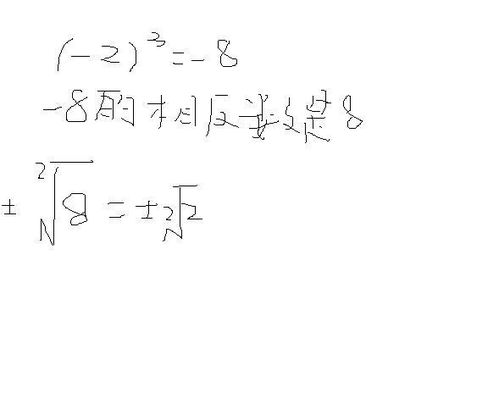 (-2)³=-8
-8的相反数是8
±²√8=±2√2